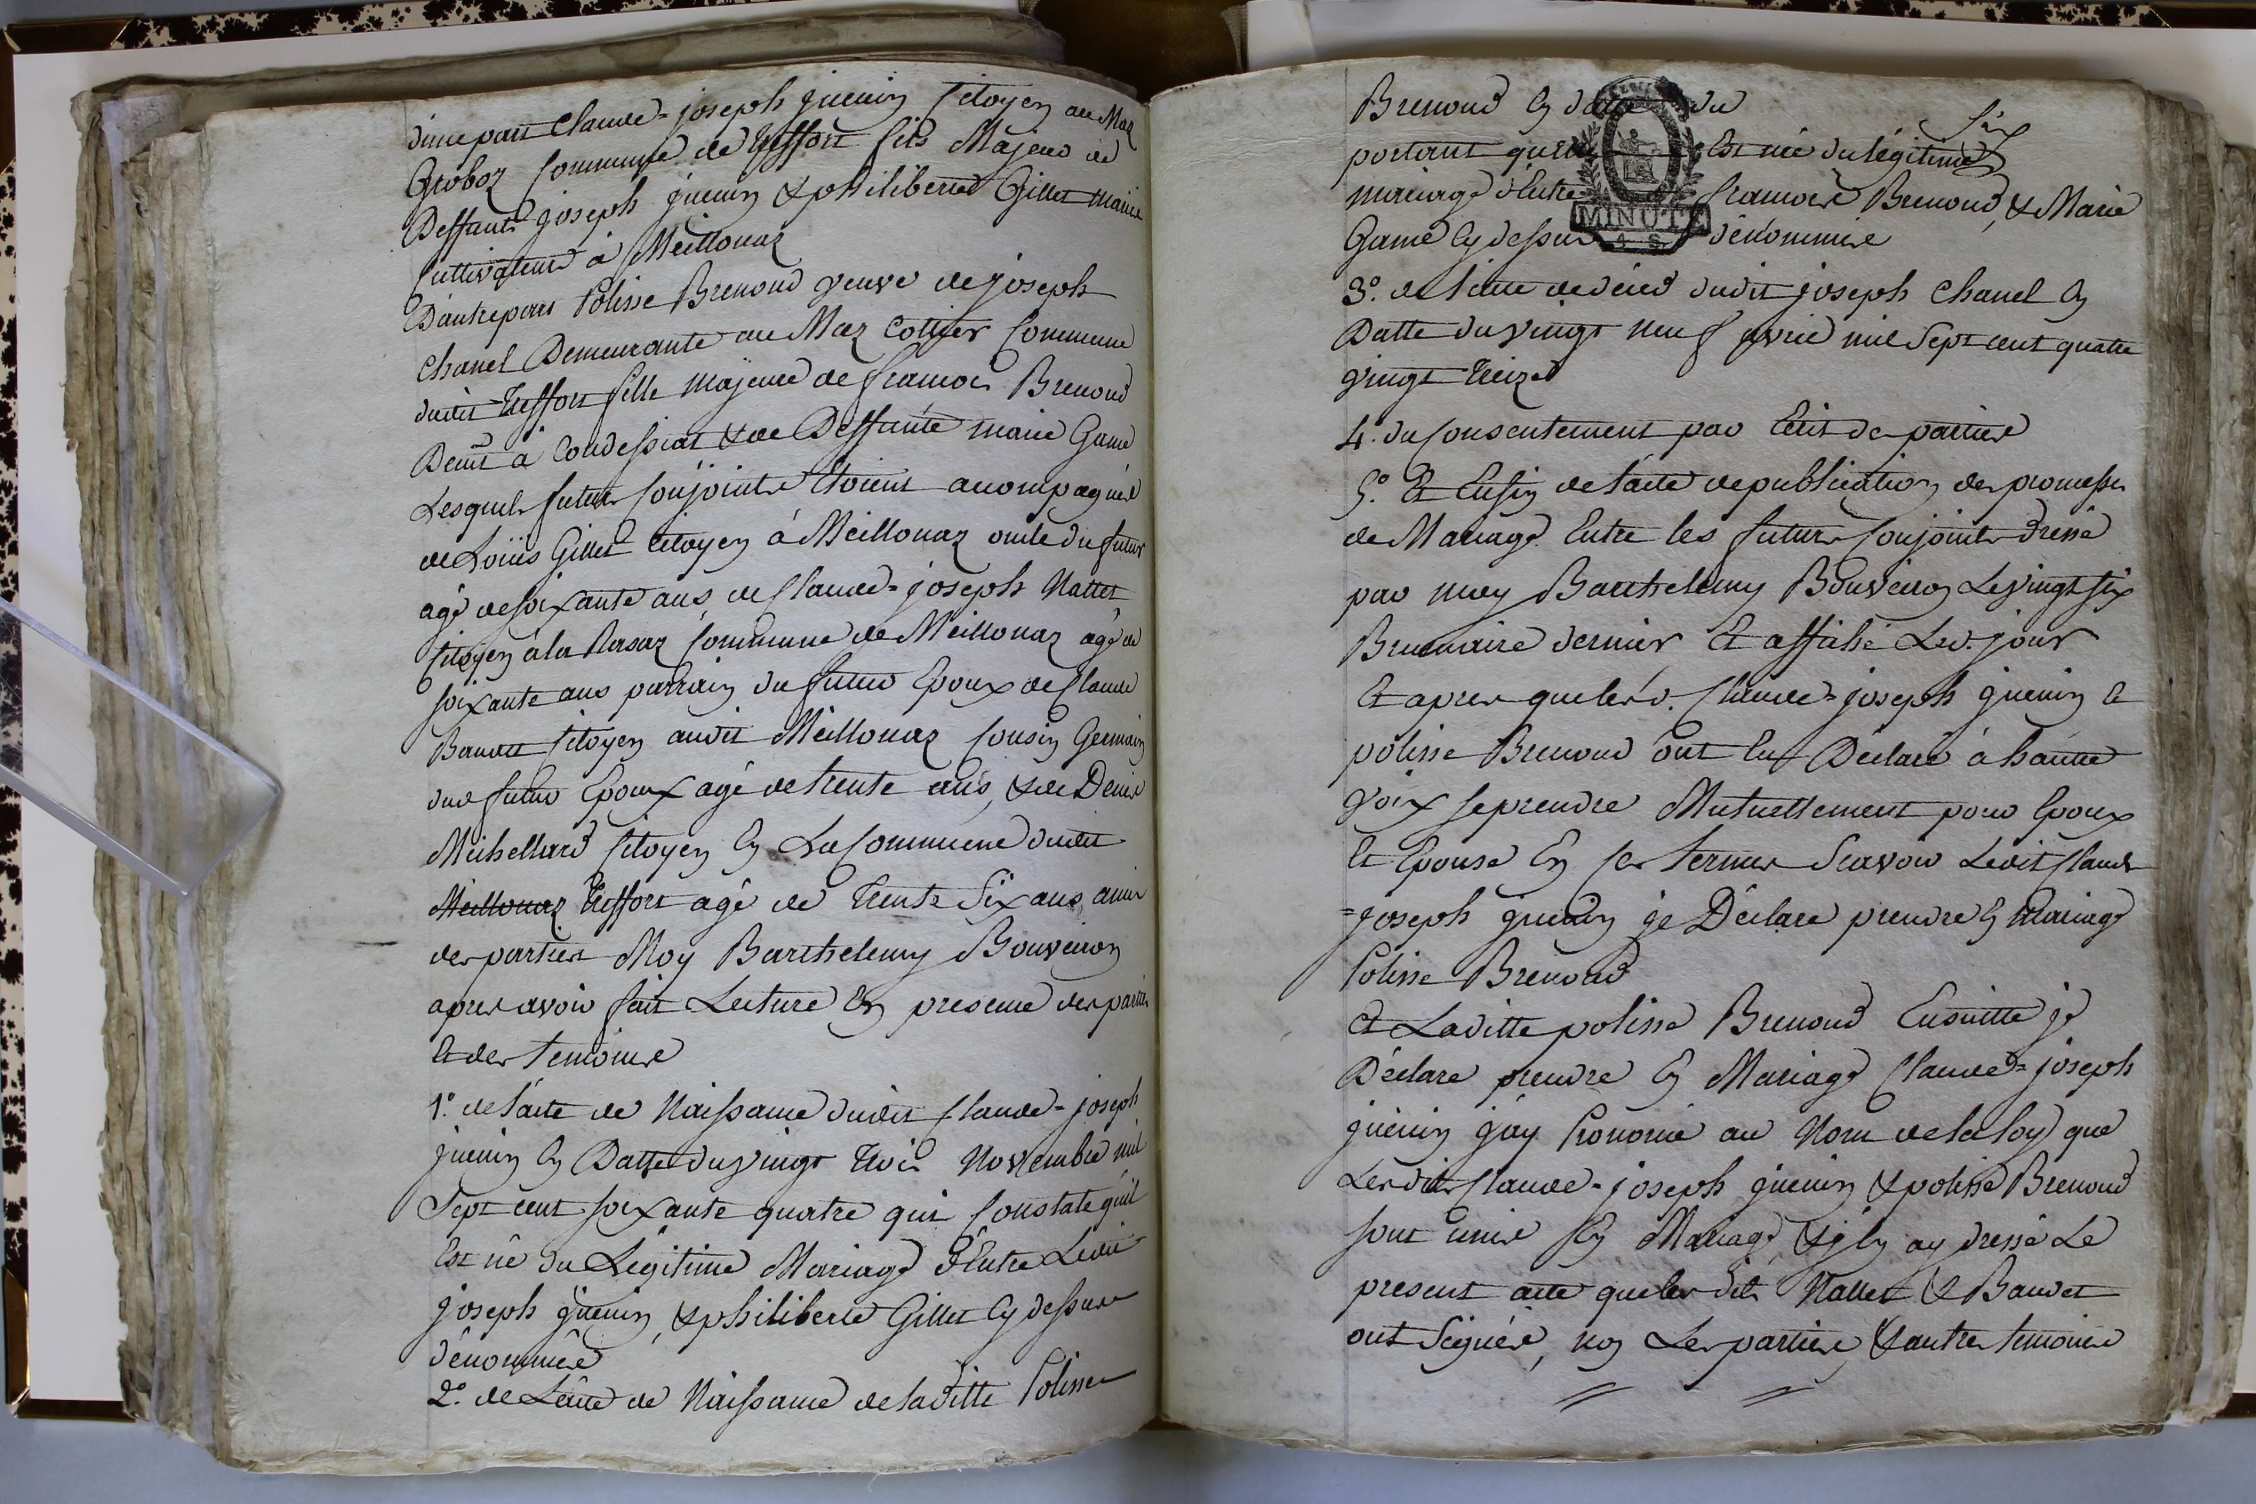 d'une part Claude=joseph juenin Citoyen au Maz
Groboz Commune de treffort fils Majeur de
Deffunt joseph juenin & philiberte Gillet mariée
Cultivateur à Meillonaz
D'autrepart Polisse Brenond veuve de joseph
Chanel Demeurante au Maz Cottier Commune
dudit Treffort fille majeure de francois Brenond
Demt à Condessiat & de Deffunte marie Game
Lesquels futurs Conjoints Etoient acompagnés
de Loüis Gillet Citoyen à Meillonaz oncle du futur
agé de soixante ans, de Claude=joseph Nallet
Citoyen à la Rasaz Commune de Meillonaz agé de
soixante ans parrain du futur Epoux de Claude
Baudet Citoyen audit Meillonaz Cousin Germain
dud futur Epoux agé de trente ans, & de Denis
Michellard Citoyen En La Commune dudit
Meillonaz Treffort agé de Trente Six ans, amis
des parties Moy Barthelemy Bouveiron
apres avoir fait Lecture En presence des parties
Et des temoins
1°. de l'acte de Naissance dudit Claude=joseph
juenin En Datte du vingt Trois Novembre mil
Sept cent soixante quatre qui Constate qu'il
Est né du Légitime Mariage d'Entre Ledit
joseph juenin, & philiberte Gillet Cy dessus
dénommés
2°. de L'acte de Naissance de laditte Polisse
Brenond En datte du
portant qu'elle Est née du légitime
mariage d'Entre francois Brenond, & Marie
MINUTE
Game Cy dessus dénommés
3°. de l'acte de décès dudit joseph Chanel En
Datte du vingt neuf avril mil Sept cent quatre
vingt treize
4°. du Consentement par Ecrit de parties
5°. Et Enfin de l'acte de publication des promesses
de Mariage Entre les futurs Conjoints Dressé
par moy Barthelemy Bouveiron Le vingt six
Brumaire dernier Et affiché Led. jour
Et apres que lesd. Claude=joseph juenin &
polisse Brenond ont Eu Déclaré à hautte
voix se prendre Mutuellement pour Epoux
Et Epouse En ces termes Scavoir Ledit Claude
=joseph juenin je Déclare prendre En Mariage
Polisse Brenond
Et Laditte polisse Brenond Ensuitte je
Déclare prendre En Mariage Claude=joseph
juenin j'ay Prononcé au Nom de la loy que
Lesdits Claude=joseph juenin & polisse Brenond
sont unis En Mariage, & j'En ay dressé Le
present acte que lesdits Nallet & Baudet
ont Signés, non Les parties, & autres temoins